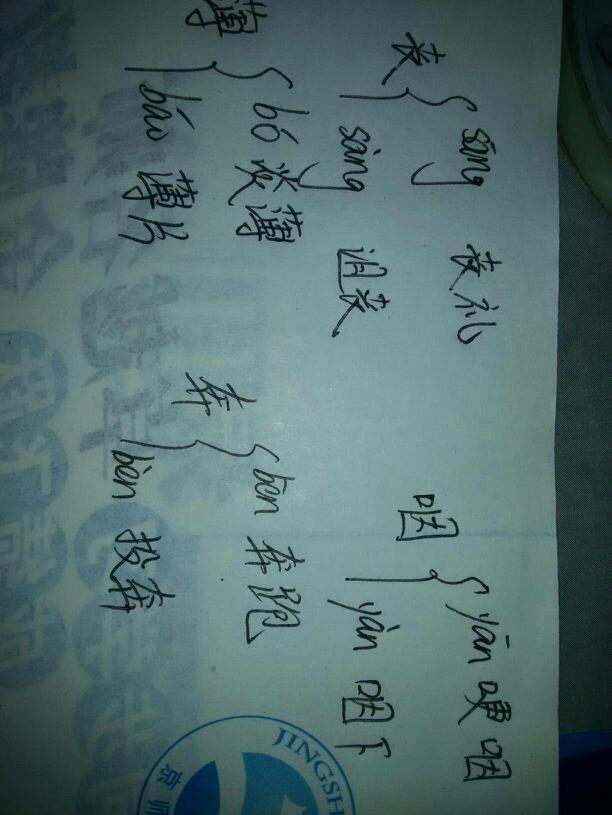 sāng 丧礼
丧
sàng 沮丧
yān 哽咽
咽
yàn 咽下
bó 淡薄
薄
báo 薄片
bēn 奔跑
奔
bèn 投奔
JINGSH
京师